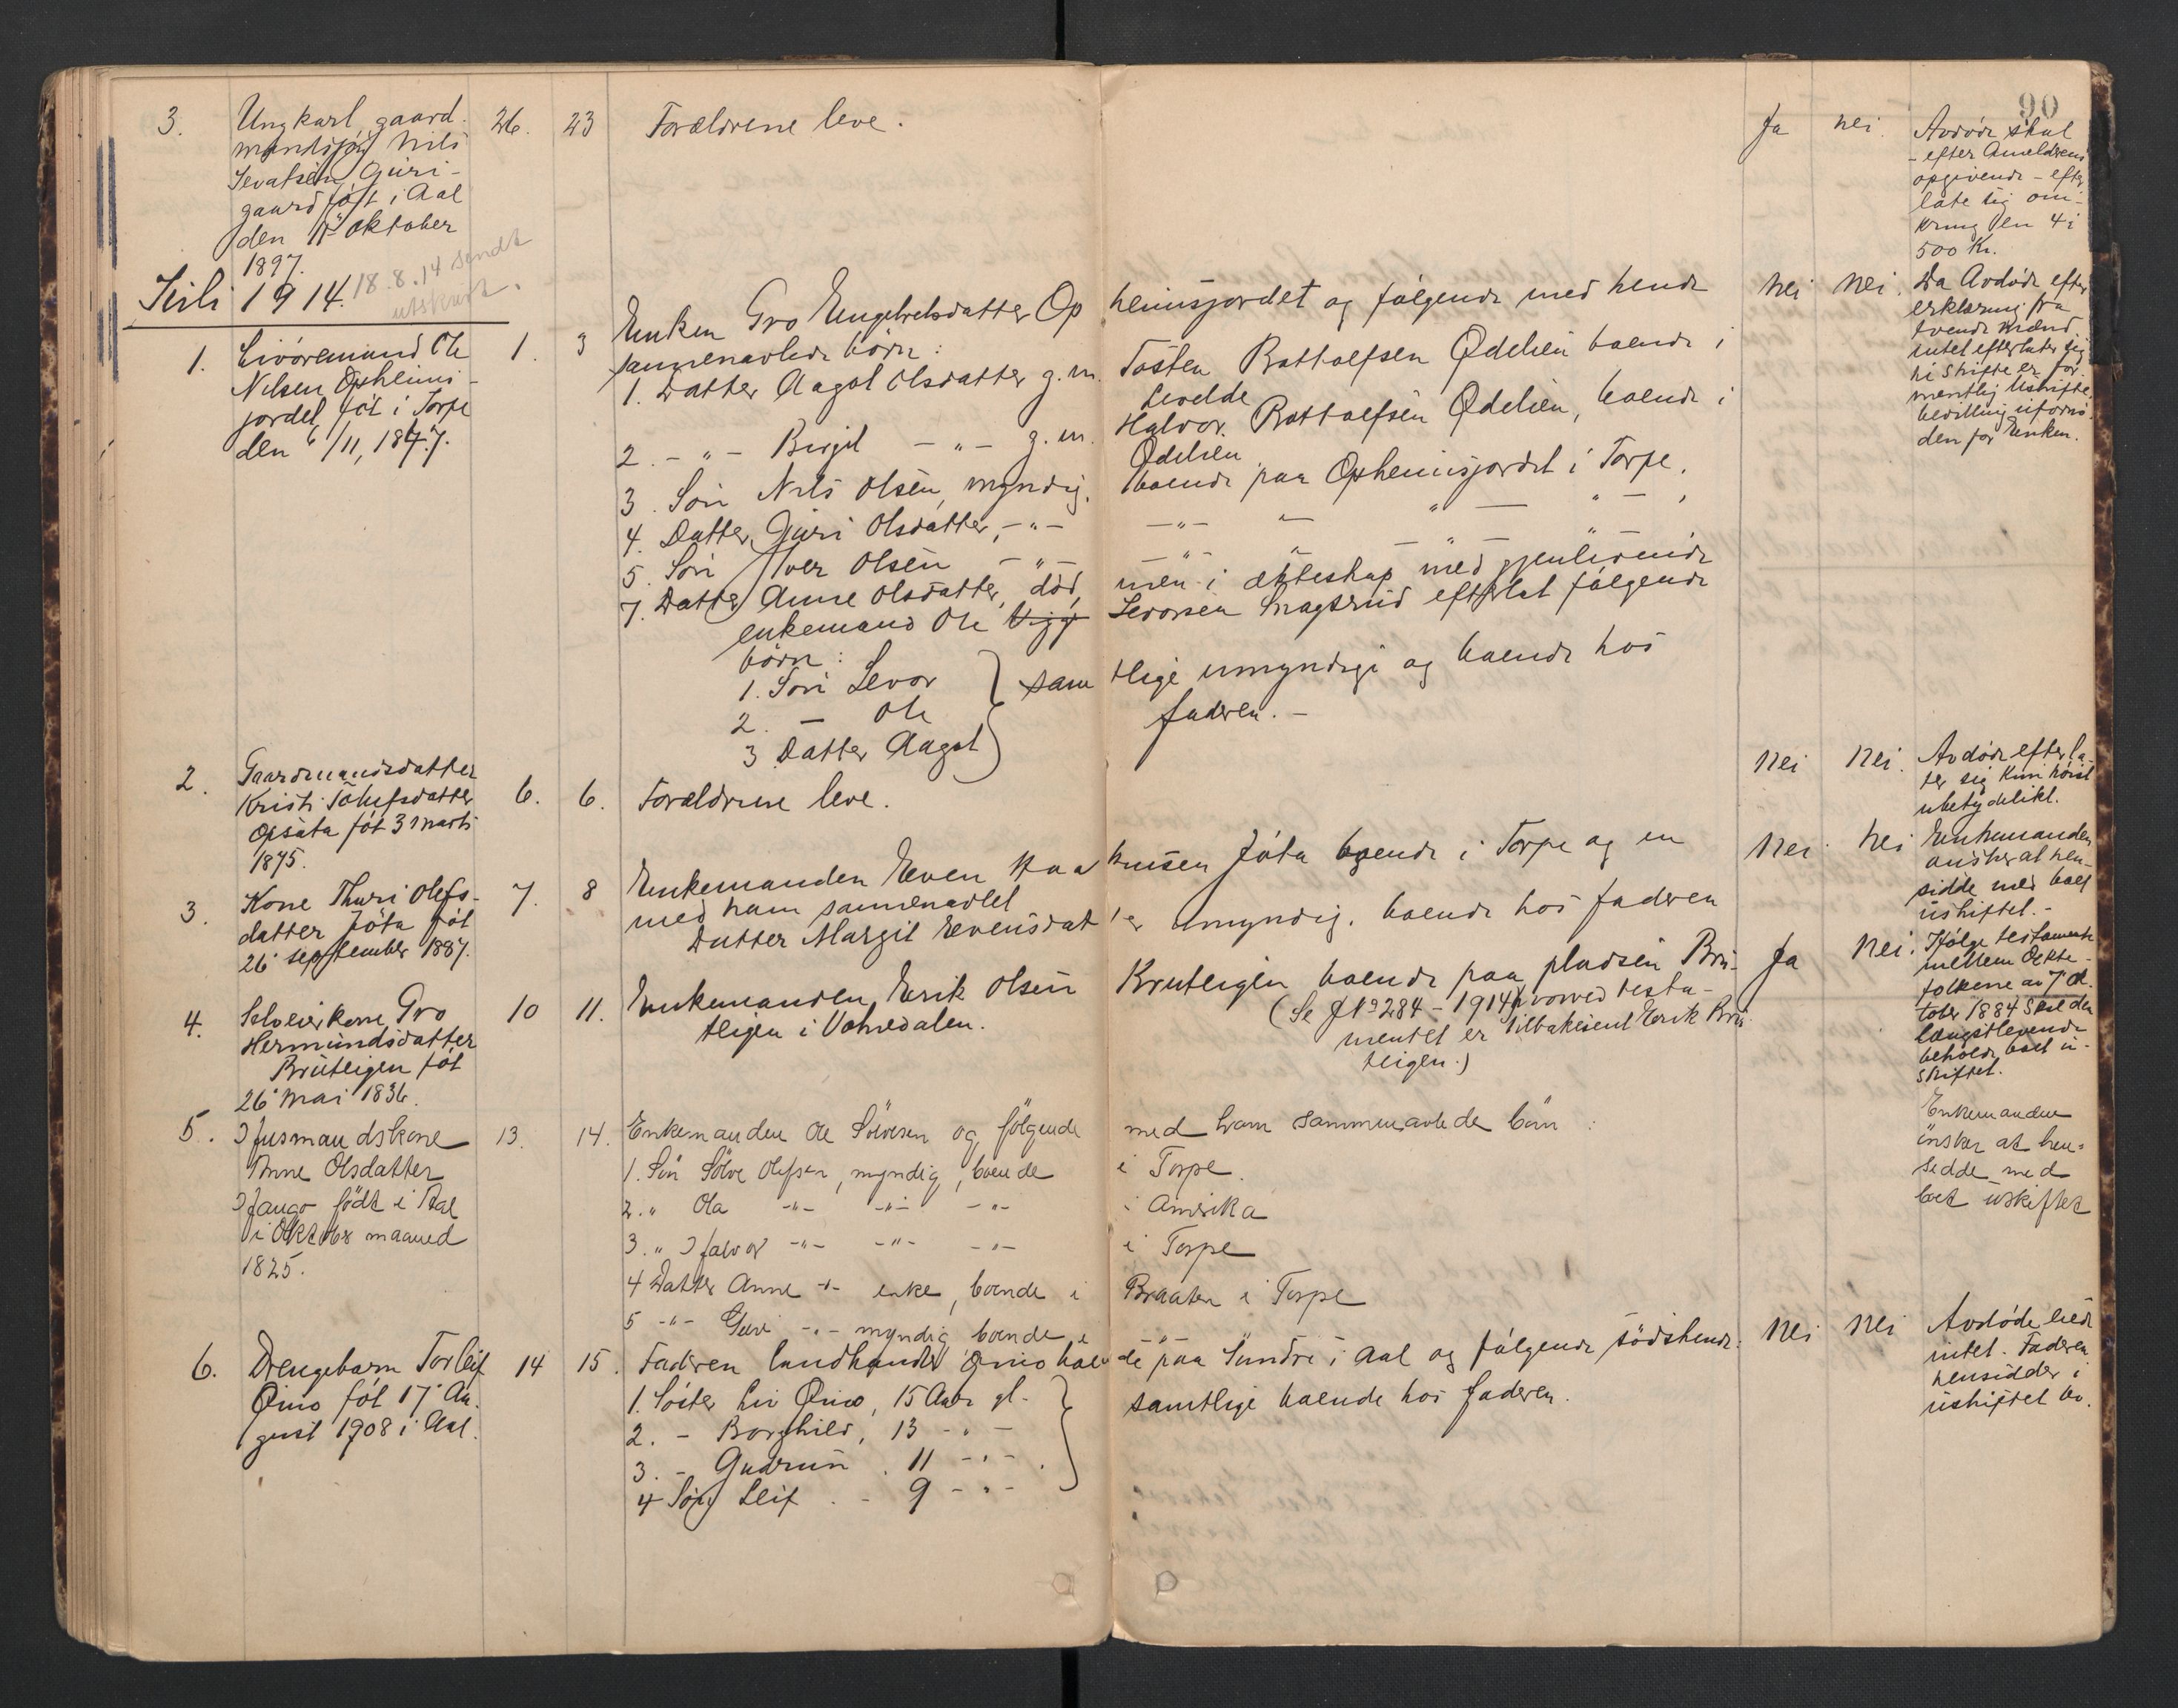 90
3. Ungkarl gaard-
mandssøn Nils
Sevatsen Guri-
gaard føt i Aal
den 11 oktober
1897.
26. 23 Forældrene leve. Ja nei.
Avdøde skal
- efter Anmelderens
opgivende - efter
late sig om-
kring en 4 à
500 Kr.
Juli 1914. 18.8.14 sendt
utskrift.
1. Livøremand Ole
Nilsen Opheims-
jordet, føt i Torpe
den 6/11, 1847.
1. 3 Enken Gro Engebretsdatter Opheimsjordet og følgende med hende
sammenavlede børn:
1. Datter Aagot Olsdatter g.m. Tosten Bottolfsen Ødelien boende i
Levelde
2. - " - Birgit - " - g.m. Halvor Bottolfsen Ødelien, boende i
Ødelien
3. Søn Nils Olsen, myndig, boende paa Opheimsjordet i Torpe.
4. Datter Guri Olsdatter, - " - - " - " - " -
5. Søn Iver Olsen - " - - " - " - " -
7. Datter Anne Olsdatter, død, men i ekteskap med gjenlevende
enkemand Ole Sevorsen efterlat følgende
børn:
1. Søn Sevor } samtlige umyndige og boende hos
2. - Ole faderen. -
3 Datter Aagot
nei nei.
Da Avdøde efter
erklæring fra
tvende mænd
intet efterlater sig
til skifte er for-
mentlig Uskifte-
bevilling ufornø-
den for Enken.
2. Gaardmandsdatter
Kristi Tolefsdatter
Opsata føt 3 marts
1875.
6. 6. Forældrene leve. nei nei.
Avdøde efterla-
ter sig kun høist
ubetydelikt.
3. Kone Thuri Olefs-
datter Jøta føt
26 september 1887.
7. 8 Enkemanden Even Knutsen Jøta boende i Torpe og en
med ham sammenavlet
Datter Margit Evensdatter umyndig, boende hos faderen
nei nei
Enkemanden
ønsker at hen-
sidde med boet
uskiftet. -
4. Selveierkone Gro
Hermundsdatter
Bruteigen føt
26 mai 1836.
10 11. Enkemanden Erik Olsen Bruteigen boende paa pladsen Bru-
teigen i Votnedalen. (Se J No 284 - 1914, hvorved testa-
mentet er tilbakesent Erik Bru-
teigen.)
Ja nei.
Ifølge testamente
mellem Ekte-
folkene av 7 ok-
tober 1884 skal den
længstlevende
beholde boet u-
skiftet.
5. Husmandskone
Anne Olsdatter
Haugo født i Aal
i Oktober maaned
1825.
13. 14. Enkemanden Ole Sølvesen og følgende med ham sammenavlede børn:
1. Søn Sølve Olefsen, myndig, boende i Torpe.
2. " Ola - " - - " - - " - i Amerika
3. " Halvor - " - - " - - " - i Torpe
4 Datter Anne - " - enke, boende i Braaten i Torpe
5 - " - Guri - " - myndig boende i - " -
Enkemanden
ønsker at hen-
sidde med
boet uskiftet
6. Drengebarn Torleif
Qino føt 17 Au-
gust 1908 i Aal.
14 15. Faderen landhandler Qino boende paa Sundre i Aal og følgende sødskende:
1. Søster Liv Qino, 15 Aar gl. } samtlige boende hos faderen.
2. - Borghild, 13 - " -
3. - Gudrun, 11 - " -
4 Søn Leif - 9 - " -
nei nei
Avdøde eied
intet. Faderen
hensidder i
uskiftet bo.